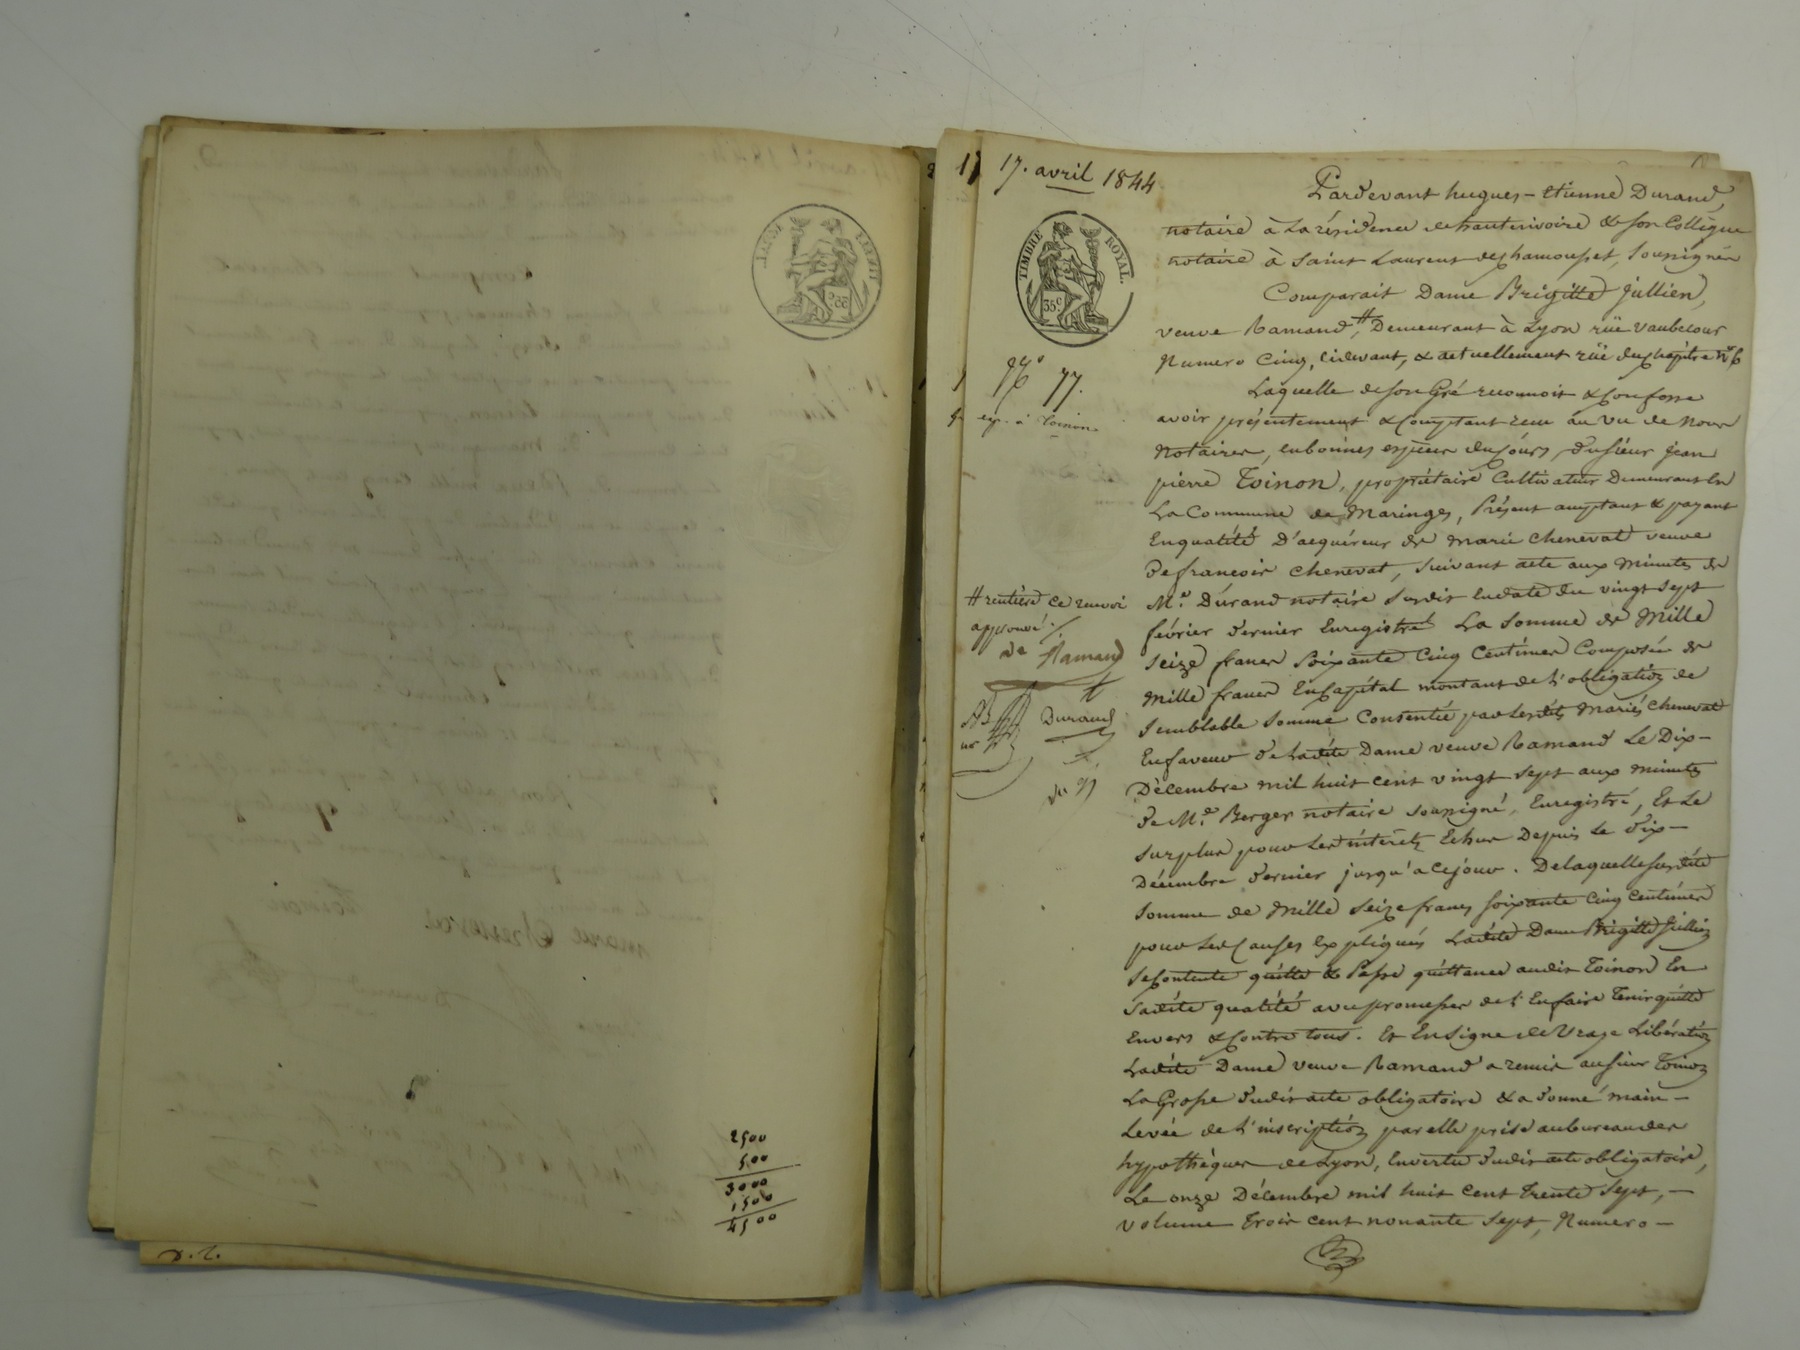 2500
500
3000
1500
4500
17. avril 1844
TIMBRE ROYAL.
35c.
No 77.
exp. à Toinon
# rentière ce renvoi
approuvé ./.
Ramand
Durand
Pardevant hugues-etienne Durand,
notaire à La résidence de hauterivoire & son Collègue
notaire à Saint Laurent de chamousset, Soussignés
Comparait Dame Brigitte Jullien,
veuve Ramand, # Demeurant à Lyon rüe vaubecour
Numero Cinq, cidevant, & actuellement rüe du chapitre No 6
Laquelle de son Gré reconnoit & Confesse
avoir présentement & Comptant reçu au vu de Nous
Notaires, en bonnes espèces du Cours, du sieur Jean
pierre Toinon, propriétaire Cultivateur Demeurant En
La Commune de Maringes, Présent acceptant & payant
En qualité D'acquéreur de marie chenevat veuve
De françois chenevat, Suivant acte aux Minutes de
Me. Durand notaire Susdit En date du vingt Sept
février dernier Enregistré La Somme de Mille
Seize francs Soixante Cinq Centimes Composée de
Mille francs En Capital montant de L'obligation de
Semblable Somme Consentie par Lesdits Mariés Chenevat
En faveur de Ladite Dame veuve Ramand Le Dix-
Décembre mil huit cent vingt sept aux minutes
de Me. Berger notaire Soussigné, Enregistré, Et Le
Surplus pour Les intérêts Echus Depuis Le dix-
Décembre dernier jusqu'à Ce jour. De laquelle Susdite
Somme de Mille Seize francs Soixante Cinq Centimes
pour Les Causes Expliquées Ladite Dame Brigitte Jullien
Se Contente quitte & Passe quittance audit Toinon En
Sadite qualité avec promesse de L'En faire Tenir quitte
Envers & Contre tous. Et En Signe de Vraye Libération
Ladite Dame veuve Ramand a remis au Sieur Toinon
La Grosse dudit acte obligatoire & a donné main-
Levée de L'inscription par elle prise au bureau des
hypothèques de Lyon, En vertu dudit acte obligatoire,
Le onze Décembre mil huit cent Trente Sept,-
Volume Trois cent nonante Sept, Numero-